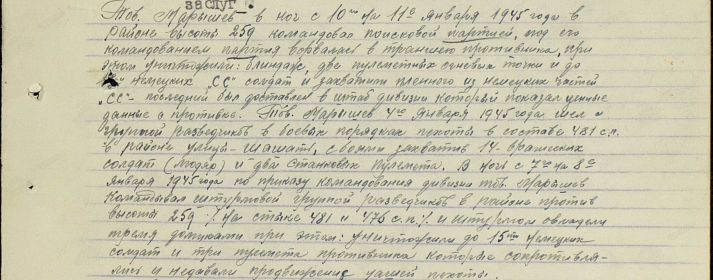 заслуг.
Тов. Марышев в ноч с 10го на 11е января 1945 года в
районе высоты 259 командовал поисковой партией, под его
командованием партия ворвалась в траншею противника, при
этом уничтожили: блиндаж, две пулеметных огневых точки и до
немецких „СС" солдат и захватили пленного из немецких частей
„СС" - последний был доставлен в штаб дивизии который показал ценные
данные о противнике. Тов. Марышев 4го января 1945 года
группой разведчиков в боевых порядках пехоты в составе 481 с.п.
в районе улицы - с боями захватив 14 вражеских
солдат (мадяр) и два станковых пулемета. В ночь с 7го на 8е
января 1945 года по приказу командования дивизии тов. Марышев
командовал штурмовой группой разведчиков в районе против
высоты 259 /на стыке 481 и 476 с.п./ и штурмом овладели
тремя домиками при этом: уничтожили до 15ти немецких
солдат и три пулемета противника которые сопротивля-
лись и недавали продвижение нашей пехоты.